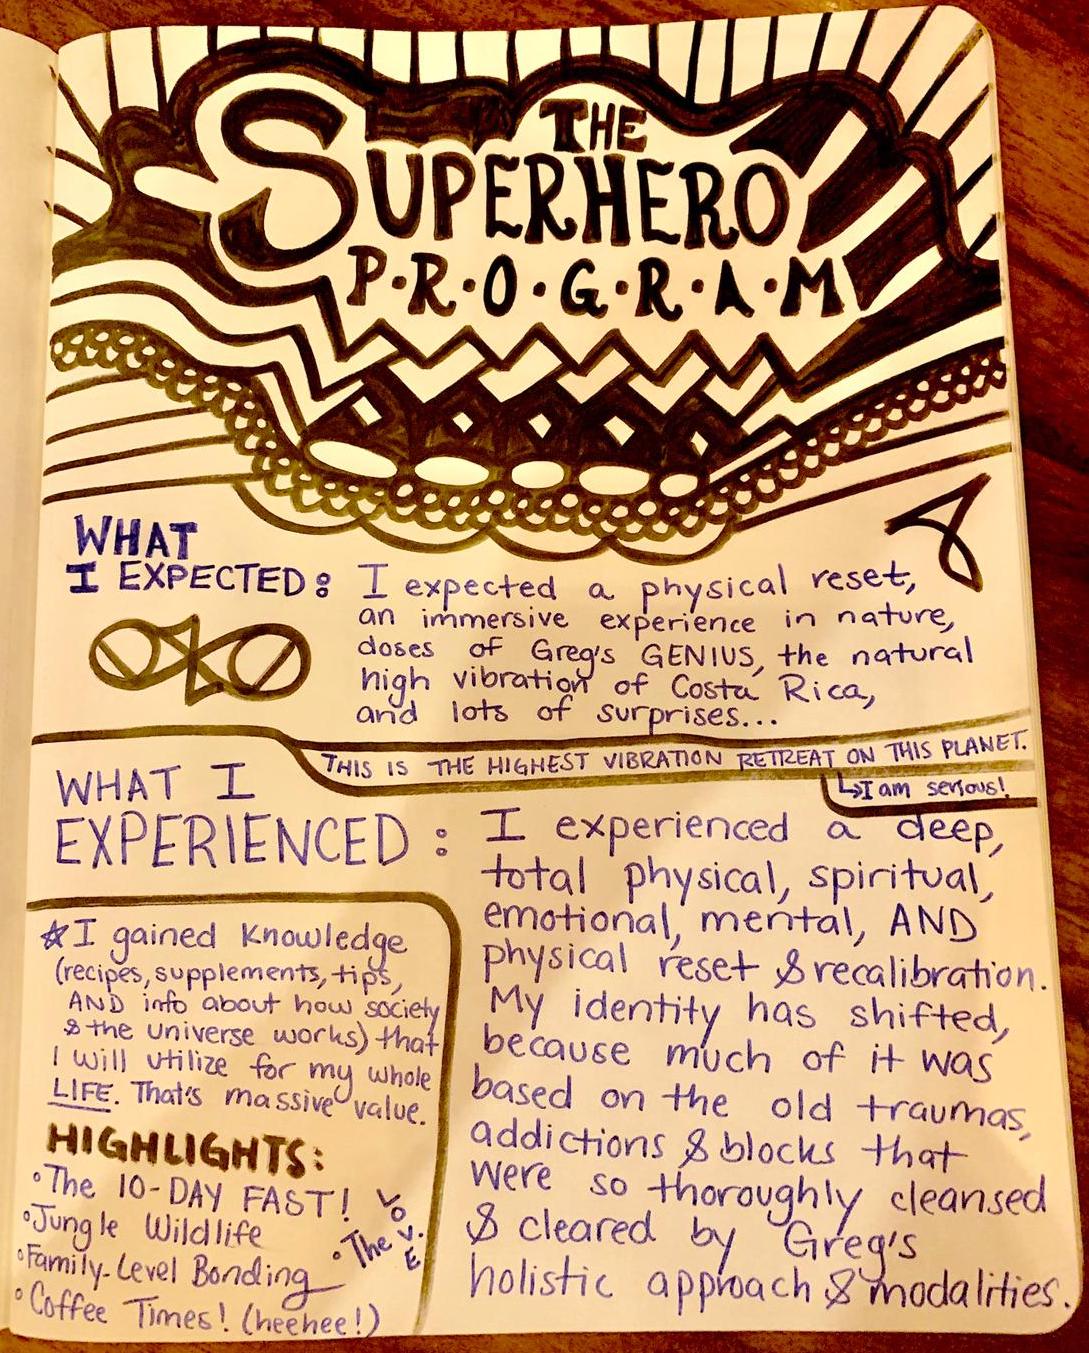 THE
SUPERHERO
P·R·O·G·R·A·M
WHAT
I EXPECTED:
I expected a physical reset,
an immersive experience in nature,
doses of Greg's GENIUS, the natural
high vibration of Costa Rica,
and lots of surprises...
THIS IS THE HIGHEST VIBRATION RETREAT ON THIS PLANET.
↳I am serious!
WHAT I
EXPERIENCED:
I experienced a deep,
total physical, spiritual,
emotional, mental, AND
physical reset & recalibration.
My identity has shifted,
because much of it was
based on the old traumas,
addictions & blocks that
were so thoroughly cleansed
& cleared by Greg's
holistic approach & modalities.
☆I gained knowledge
(recipes, supplements, tips,
AND info about how society
& the universe works) that
I will utilize for my whole
LIFE. That's massive value.
HIGHLIGHTS:
•The 10-DAY FAST!
•Jungle Wildlife
•Family-Level Bonding
•Coffee Times! (heehee!)
•The LOVE.